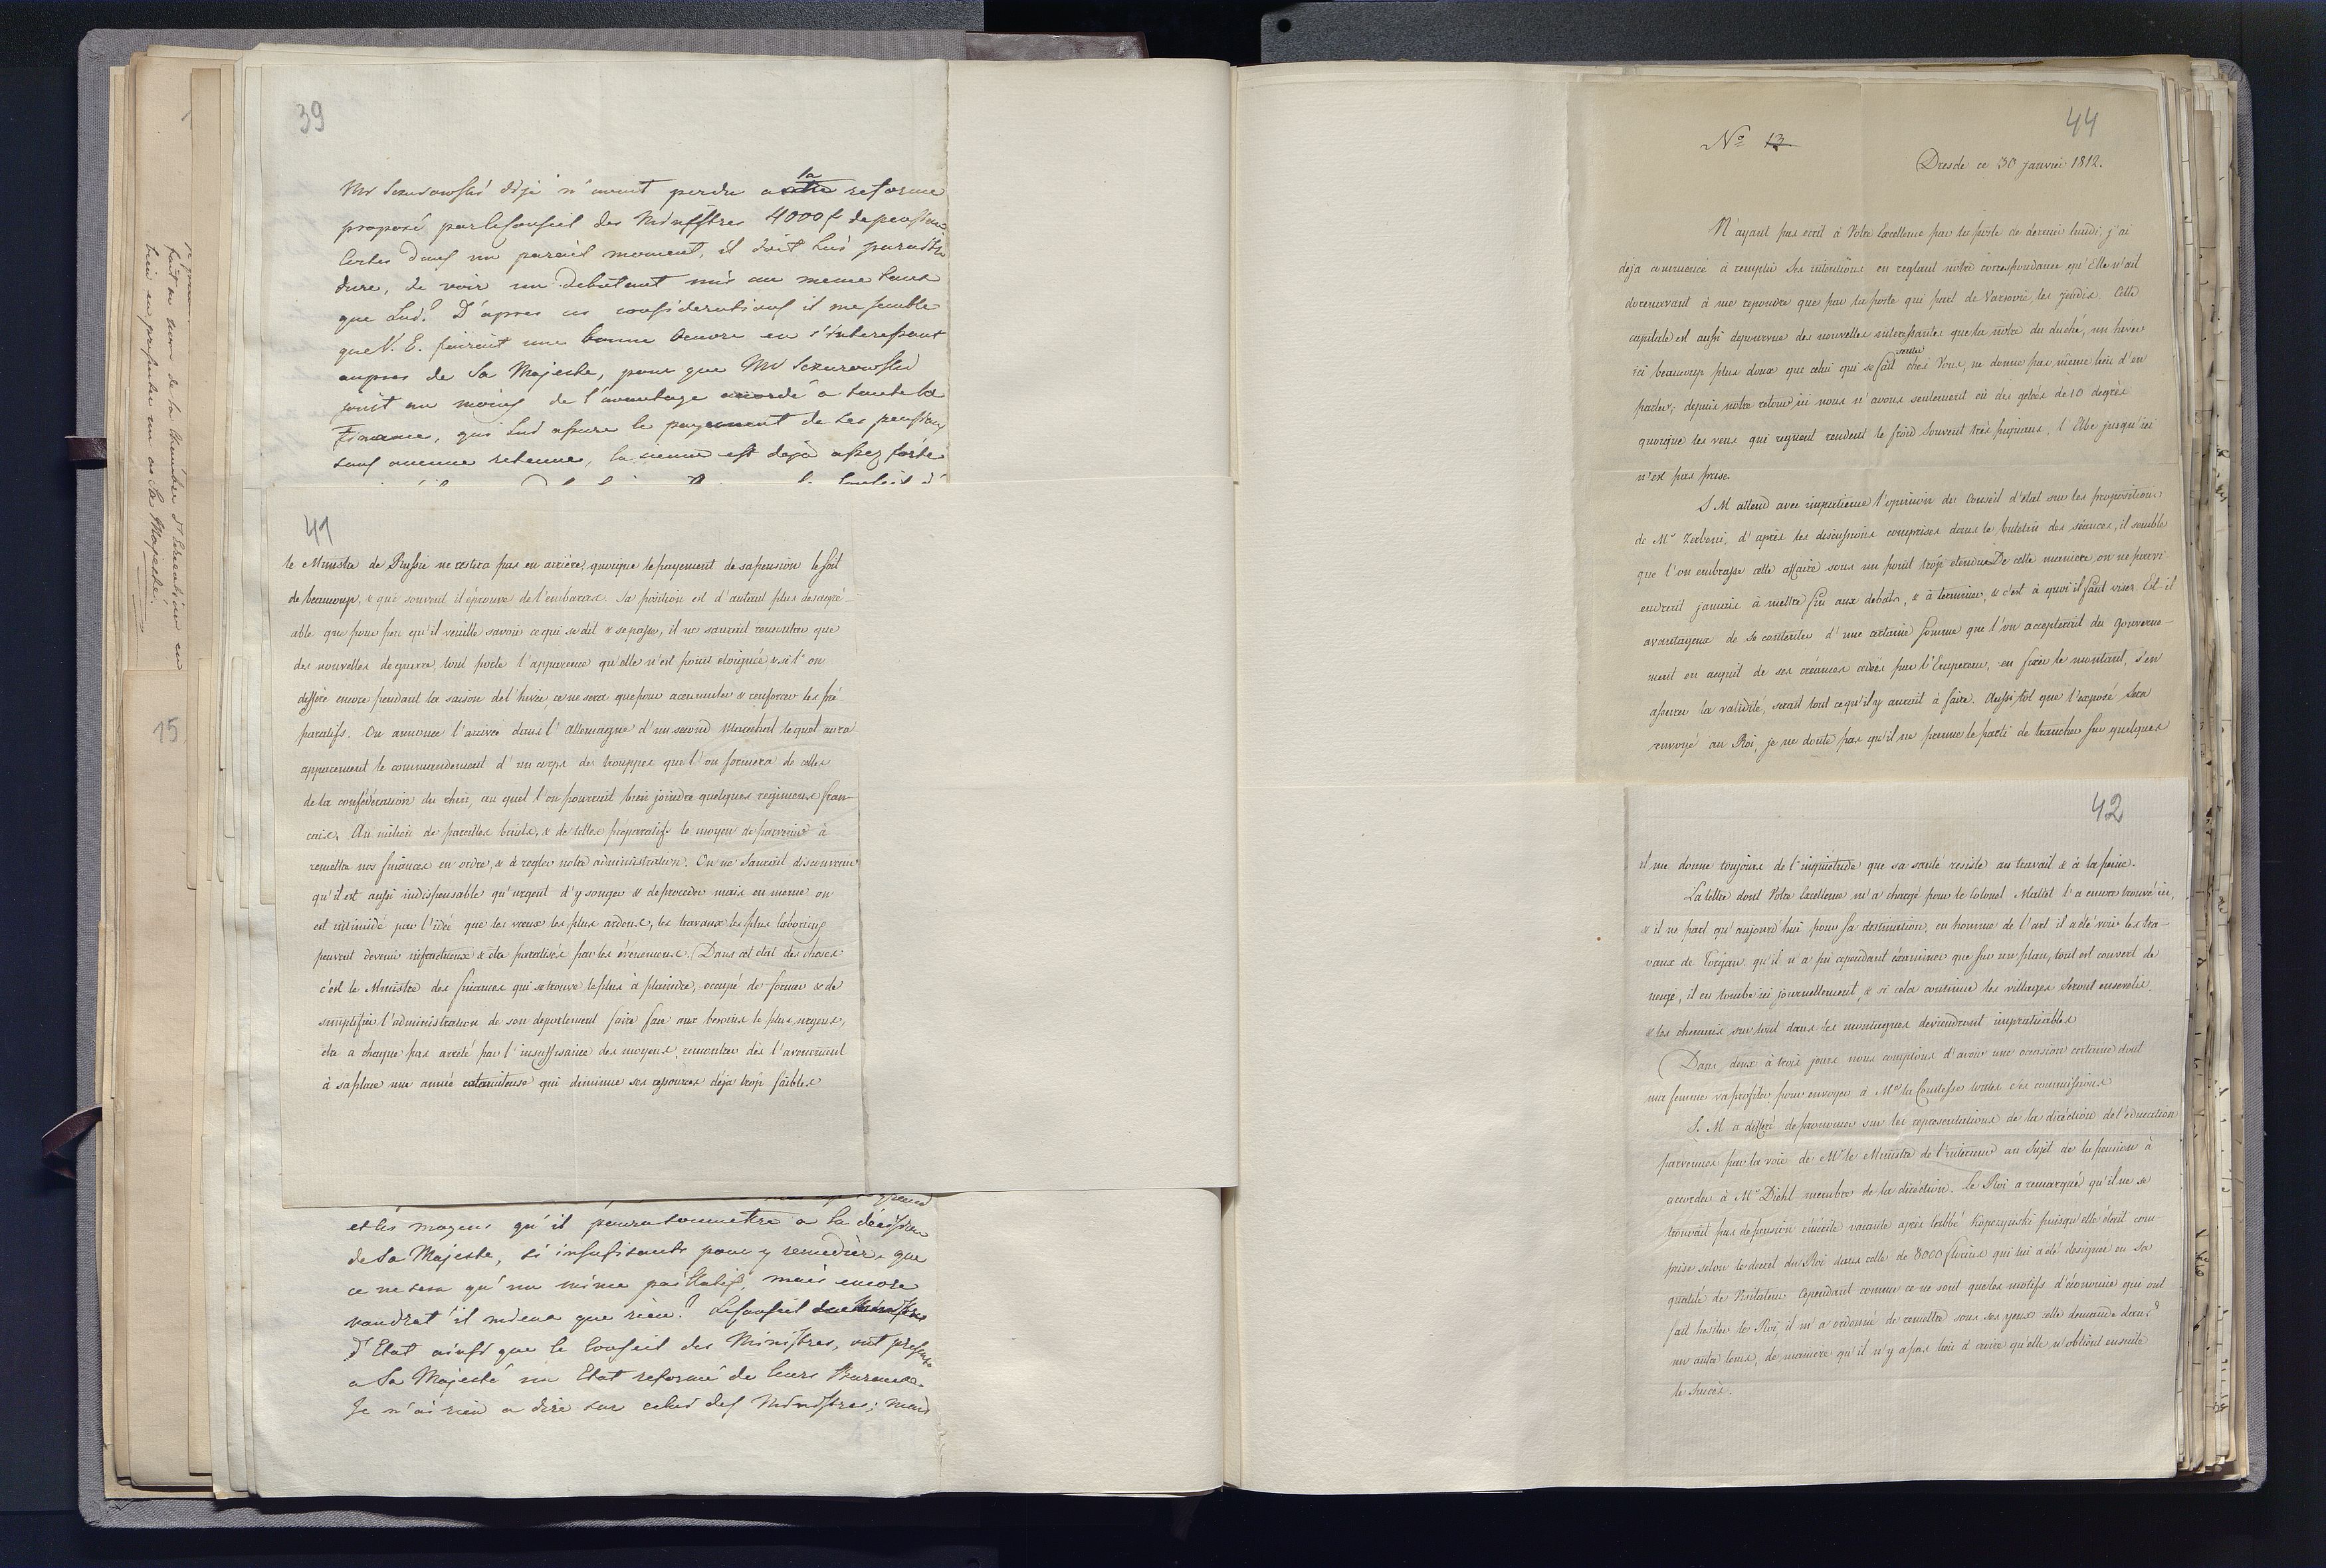 39
Mr Szaniawski déjà n'avait perdu a la reforme
proposé par le Conseil des Ministres 4000 f de pension
certes dans un pareil moment, il doit lui paraitre
dure, de voir un debutant mis au meme taux
que Lui? D'apres ces considerations il me semble
que V. E. fairait une bonne Oeuvre en s'interessant
aupres de Sa Majeste, pour que Mr
jouit au moins de l'avantage accordé a toute la
Finance, qui lui assure le payement de ses pensions
sans aucune retenue, la sienne est déjà assez forte
41
le Ministre de Russie ne restera pas en arriere, quoique le payement de sa pension le soit
de beaucoup, & que souvent il éprouve de l'embaras. Sa position est d'autant plus desagré-
able que pour peu qu'il veuille savoir ce qui se dit & se passe, il ne saurait rencontrer que
des nouvelles de guerre, tout porte l'apparence qu'elle n'est point eloignée & si l'on
differe encore pendant la saison de l'hiver, ce ne sera que pour accumuler & renforcer les pré-
paratifs. On annonce l'arrivée dans l'Allemagne d'un second Marechal lequel aura
apparement le commandement d'un corps des trouppes que l'on formera de celles
de la confédération du rhin, au quel l'on pourrait bien joindre quelques regimens fran-
cais. Au milieu de pareilles bruits, & de telles préparatifs le moyen de parvenir à
remettre nos finances en ordre, & à regler notre administration. On ne saurait disconvenir
qu'il est aussi indispensable qu'urgent d'y songer & de proceder mais en meme on
est intimidé par l'idée que les voeux les plus ardens, les travaux les plus laborieux
peuvent devenir infructueux & etre paralisés par les évenemens. Dans cet etat des choses
c'est le Ministre des finances qui se trouve le plus à plaindre, occupé de former & de
simplifier l'administration de son departement faire face aux besoins le plus urgens,
etre a chaque pas arreté par l'insuffisance des moyens, rencontrer dès l'avenement
à sa place une année calamiteuse qui diminue ses ressources déja trop faibles
et les moyens qu'il pourra soumettre a la décision
de Sa Majeste, si insufisants pour y remedier, que
ce ne sera qu'un mince palliatif, mais encore
vaudrat'il mieux que rien? Le Conseil
d'Etat ainsi que le Conseil des Ministres, ont presenté
a Sa Majesté un Etat reformé de leurs Bureaux.
Je n'ai rien a dire sur celui des Ministres; mais
fait au nom de la chambre d'Education en
bien en presenter un a Sa Majeste.
15
44
No 13
Dresde ce 30 janvier 1812.
N'ayant pas ecrit à Votre Excellence par la poste de dernier lundi, j'ai
déja commencé à remplir Ses intentions en reglant notre correspondance qu'Elle n'ait
dorenavant à me repondre que par la poste qui part de Varsovie les jeudis. Cette
capitale est aussi depourvue des nouvelles interessantes que la notre du duché, un hiver
ici beaucoup plus doux que celui qui se fait sentir chés Vous, ne donne pas même lieu d'en
parler; depuis notre retour ici nous n'avons seulement eu des gelées de 10 degrés
quoique les vens qui regnent rendent le froid souvent très piquans, l'Elbe jusqu'ici
n'est pas prise.
S M attend avec impatience l'opinion du Conseil d'etat sur les propositions
de Mr Zerboni, d'après les discussions comprises dans le buletin des séances, il semble
que l'on embrasse cette affaire sous un point trop etendu. De cette maniere on ne parvi-
endrait jamais à mettre fin aux debats, & à terminer, & c'est à quoi il faut viser. Est-il
avantageux de se contenter d'une certaine somme que l'on accepterait du gouverne-
ment en acquit de ses créances cedées par l'Empereur, en fixer le montant, s'en
assurer la validité, serait tout ce qu'il y aurait à faire. Aussi tôt que l'exposé sera
envoyé au Roi, je ne doute pas qu'il ne prenne le parti de trancher sur quelques
42
il me donne toujours de l'inquietude que sa santé resiste au travail & à la peine.
La lettre dont Votre Excellence m'a chargé pour le Colonel Mallet l'a encore trouvé ici,
& il ne part qu'aujourd'hui pour sa destination, en homme de l'art il a été voir les tra-
vaux de Torgau, qu'il n'a pû cependant examiner que sur un plan, tout est couvert de
neige, il en tombe ici journellement, & si cela continue les villages seront ensevelis
& les chemins sur tout dans les montagnes deviendront impraticables
Dans deux à trois jours nous comptons d'avoir une occasion certaine dont
ma femme va profiter pour envoyer à Me la Comtesse toutes ces commissions
S. M a differé de prononcer sur les representations de la direction de l'education
parvenues par la voie de Mr le Ministre de l'interieur au Sujet de la pension à
accorder à Mr Diehl membre de la direction. Le Roi a remarqué qu'il ne se
trouvait pas de pension emérite vacante après l'abbé Kopczynski puisqu'elle étoit com-
prise selon le decret du Roi dans celle de 8000 florins qui lui a été designée en sa
qualité de Visitateur. Cependant comme ce ne sont que les motifs d'économie qui ont
fait hesiter le Roi, il m'a ordonné de remettre sous ses yeux cette demande dans
un autre tems, de maniere qu'il n'y a pas lieu d croire qu'elle n'obtient ensuite
le succès.